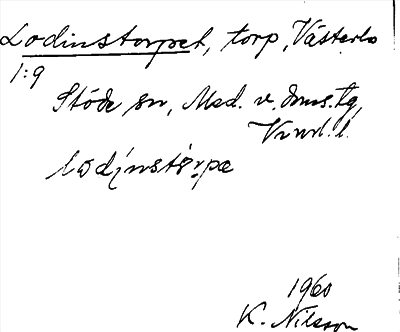 Lodinstorpet, torp, Västerlo
1:9
Stöde sn, Med. v. doms. tg,
Vnrl. l.
lodinstörpa
1960
K. Nilsson